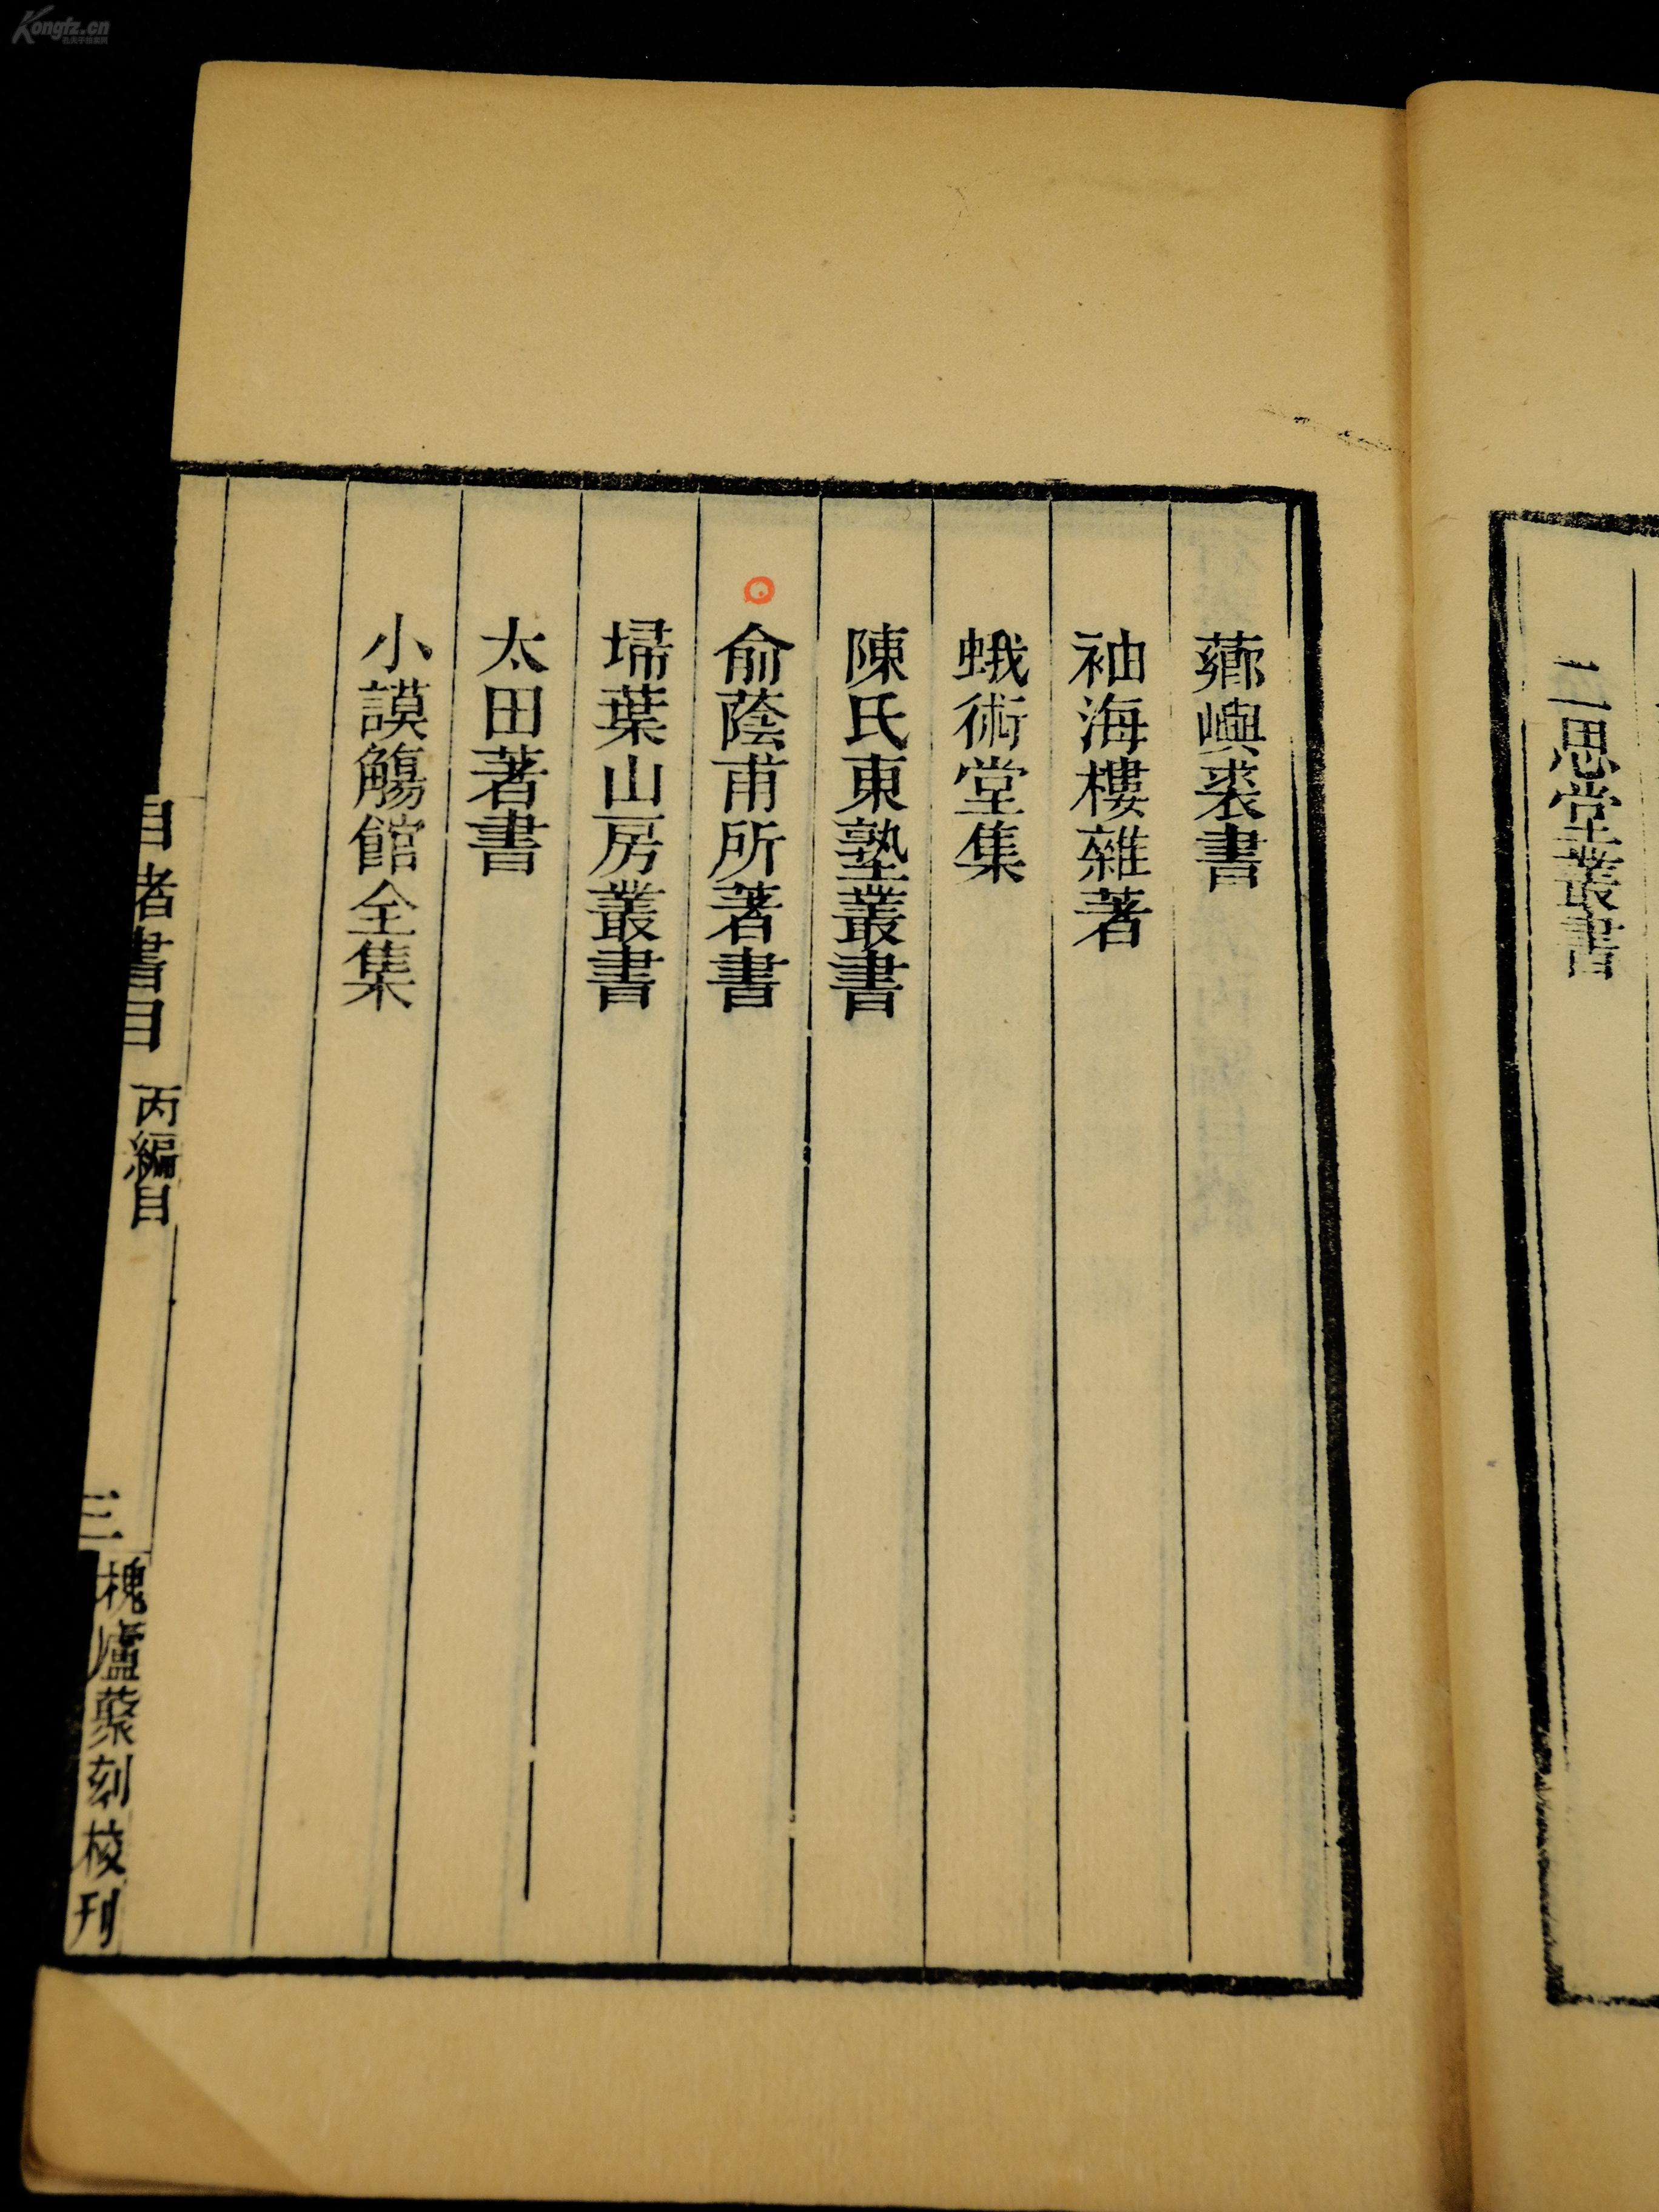 Kongfz.cn
二思堂叢書
薌嶼裘書
袖海樓雜著
蛾術堂集
陳氏東塾叢書
俞蔭甫所著書
埽葉山房叢書
太田著書
小謨觴館全集
書目
丙編目
三
槐廬叢刻校刊